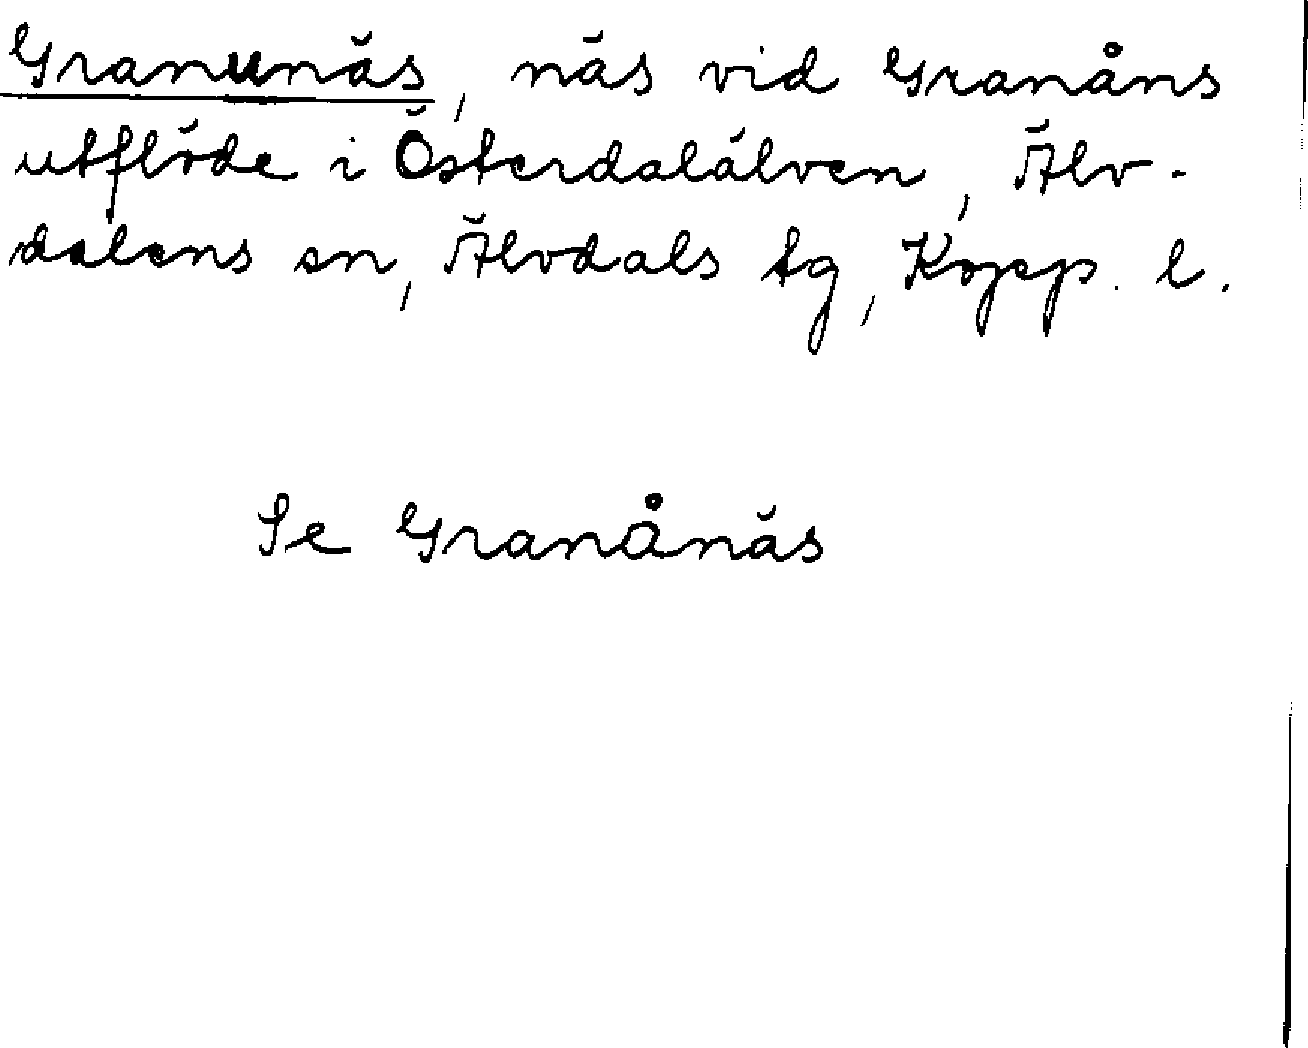 Granunäs, näs vid Granåns
utflöde i Österdalälven, Älv-
dalens sn, Älvdals tg, Kopp. l.
Se Granånäs